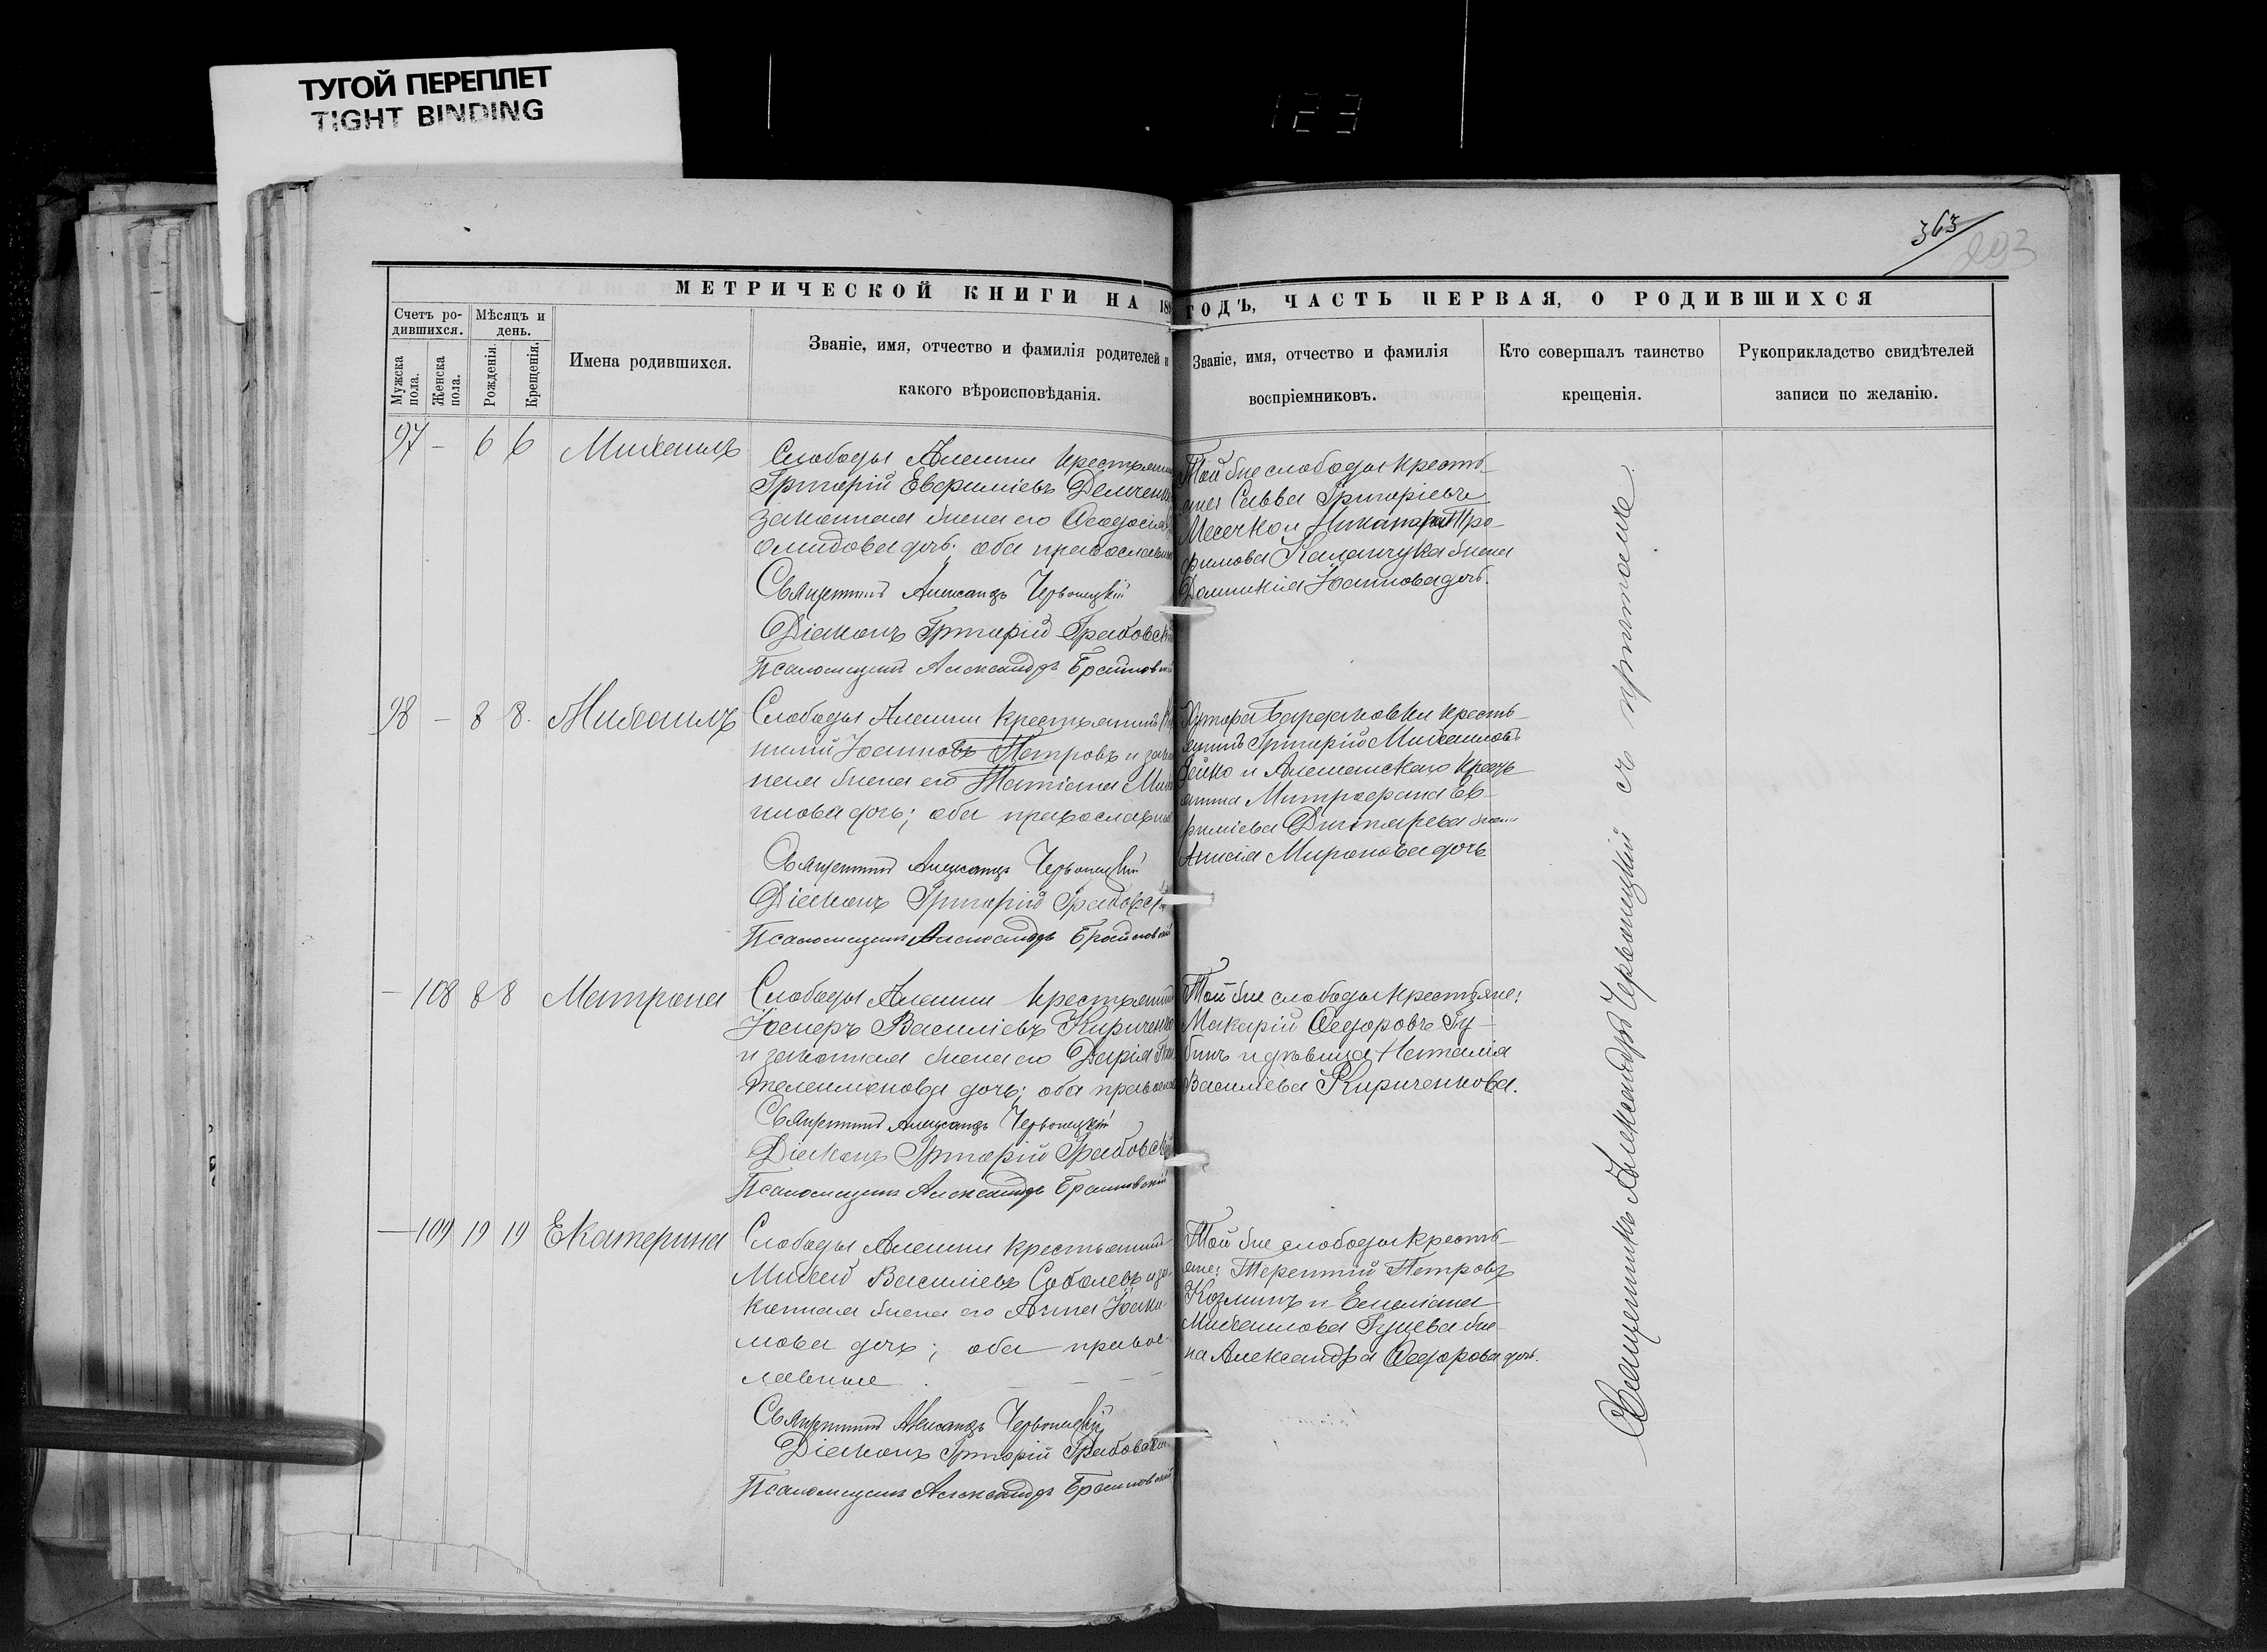 ТУГОЙ ПЕРЕПЛЕТ
TIGHT BINDING
123
363
293
МЕТРИЧЕСКОЙ КНИГИ НА 18
ГОДЪ, ЧАСТЬ ПЕРВАЯ, О РОДИВШИХСЯ
Счетъ ро-
дившихся.
Мѣсяцъ и
день.
Мужска
пола.
Женска
пола.
Рожденія.
Крещенія.
Имена родившихся.
Званіе, имя, отчество и фамилія родителей и
какого вѣроисповѣданія.
Званіе, имя, отчество и фамилія
воспріемниковъ.
Кто совершалъ таинство
крещенія.
Рукоприкладство свидѣтелей
записи по желанію.
97 – 6 6 Михаилъ
Слободы Алешни крестьянин
Григорій Евфиміевъ Демченк
законная жена его Феодосія
омидова дочь; оба православн
Священникъ Александръ Червонецкій
Діаконъ Григорій Грабовскі
Псаломщикъ Александръ
Той же слободы кресть-
яне: Савва Григоріевъ
Трo-
фимова жена
Домникія Іоаннова дочь.
98 – 8 8. Михаилъ
Слободы Алешни крестьянинъ
Іоанновъ Петровъ и зако
ная жена его Татіана
нова дочь; оба православн
Священникъ Александръ Червонецкій
Діаконъ Григорій Грабовск
Псаломщикъ Александръ
Хутора кресть-
янинъ Григорій Михаиловъ
и Алешанскаго крест
янина Митрофана Ев-
фиміева жена
Анисія Миронова дочь
– 108 8 8 Матрона
Слободы Алешни крестьянин
Іосифъ Василіевъ Кириченко
и законная жена его Дарія Пан
телеимонова дочь; оба правосла
Священникъ Александръ Червонецкій
Діаконъ Григорій Грабовскі
Псаломщикъ Александръ
Той же слободы крестьяне:
Макарій Феодоровъ Гу-
бинъ и дѣвица Наталія
Василіева Кириченкова.
– 109 19 19 Екатерина
Слободы Алешни крестьянинъ
Михей Василіевъ Соболевъ и за-
конная жена его Анна Іоаки-
мова дочь; оба правос-
лавные.
Священникъ Александръ Червонецкій
Діаконъ Григорій Грабовскі
Псаломщикъ Александръ
Той же слободы кресть-
яне: Терентій Петровъ
Козминъ и Емеліана
Михаилова же-
на Александра Феодорова дочь.
Священникъ Александръ Червонецкій съ причтомъ